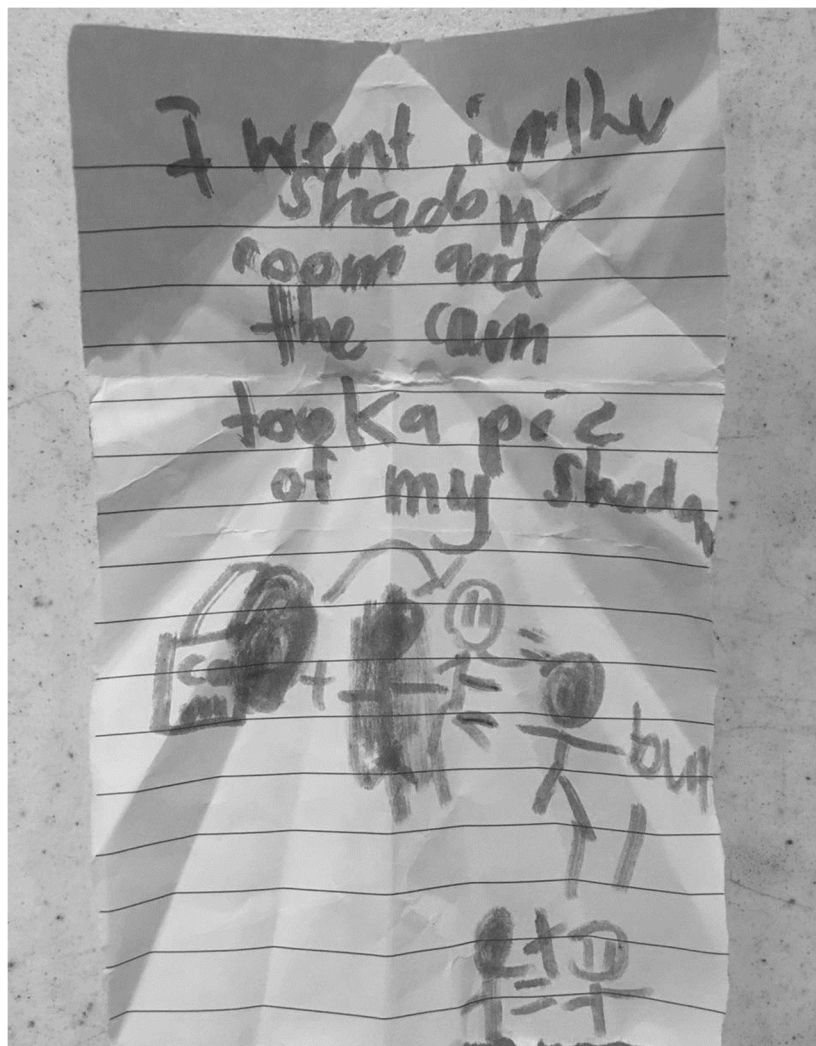 I went in the
shadow
room and
the cam
took a pic
of my shadow
cam
bun